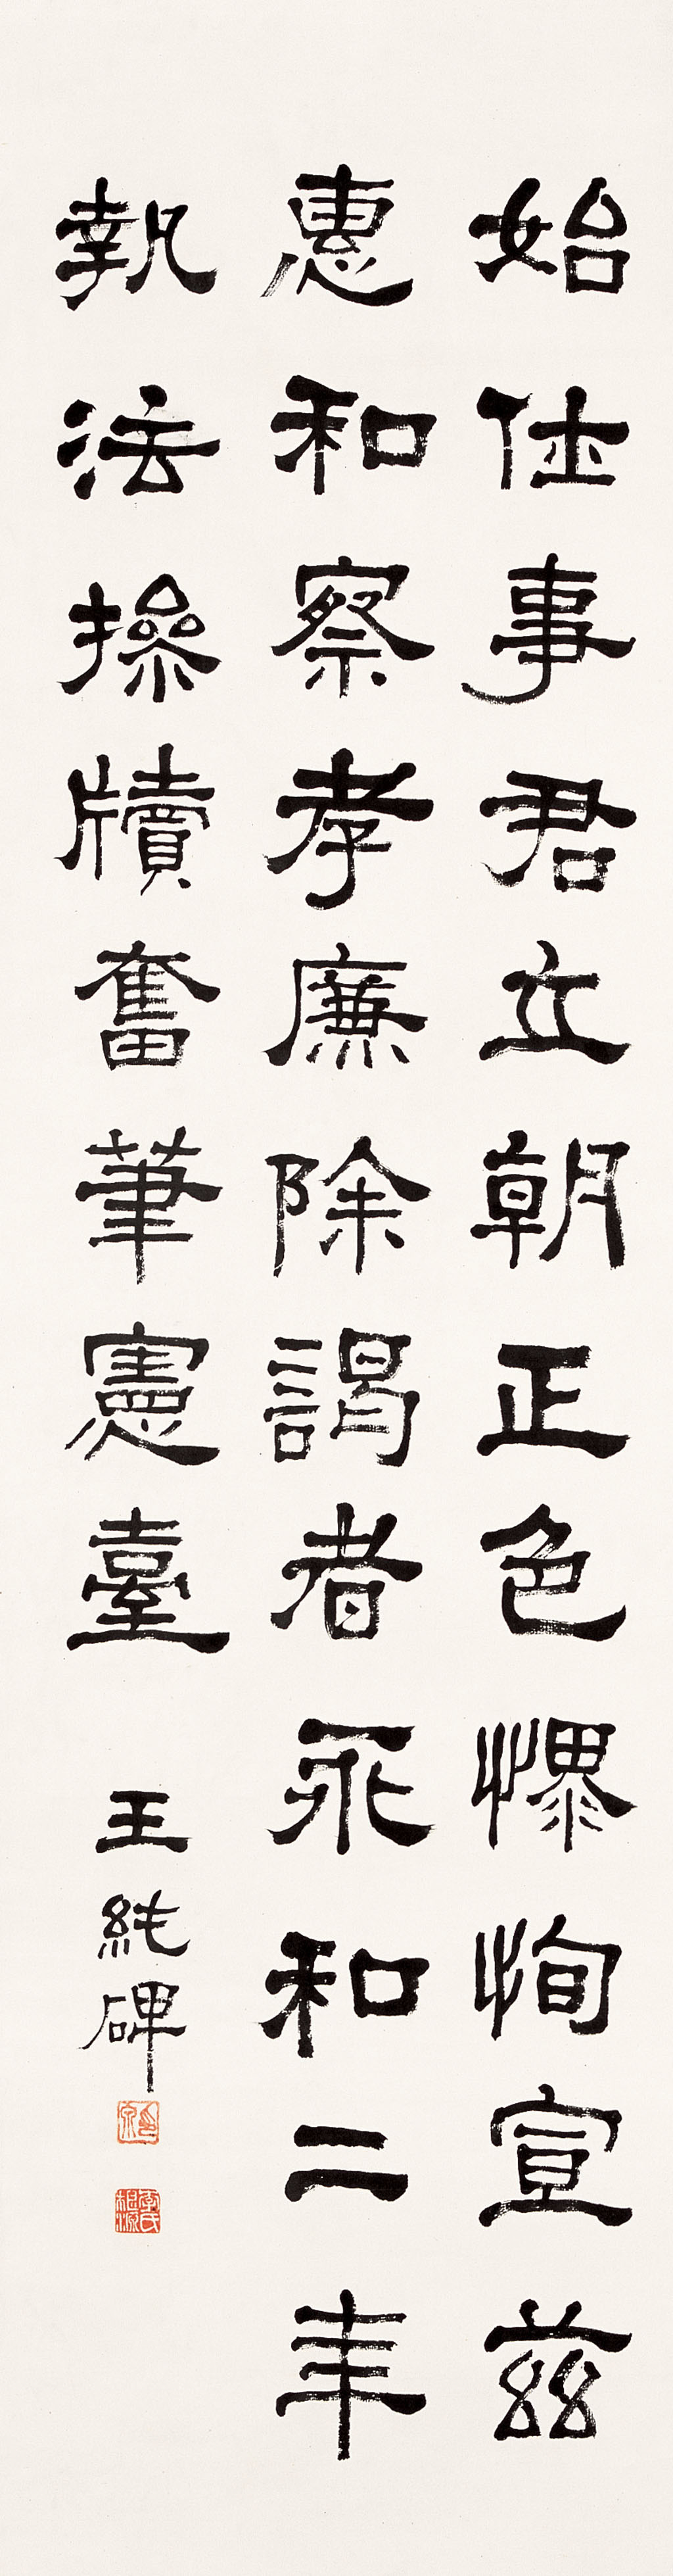 始仕事君立朝正色慓恂宣茲
惠和察孝廉除謁者永和二年
執法操牘奮筆憲臺
王純碑